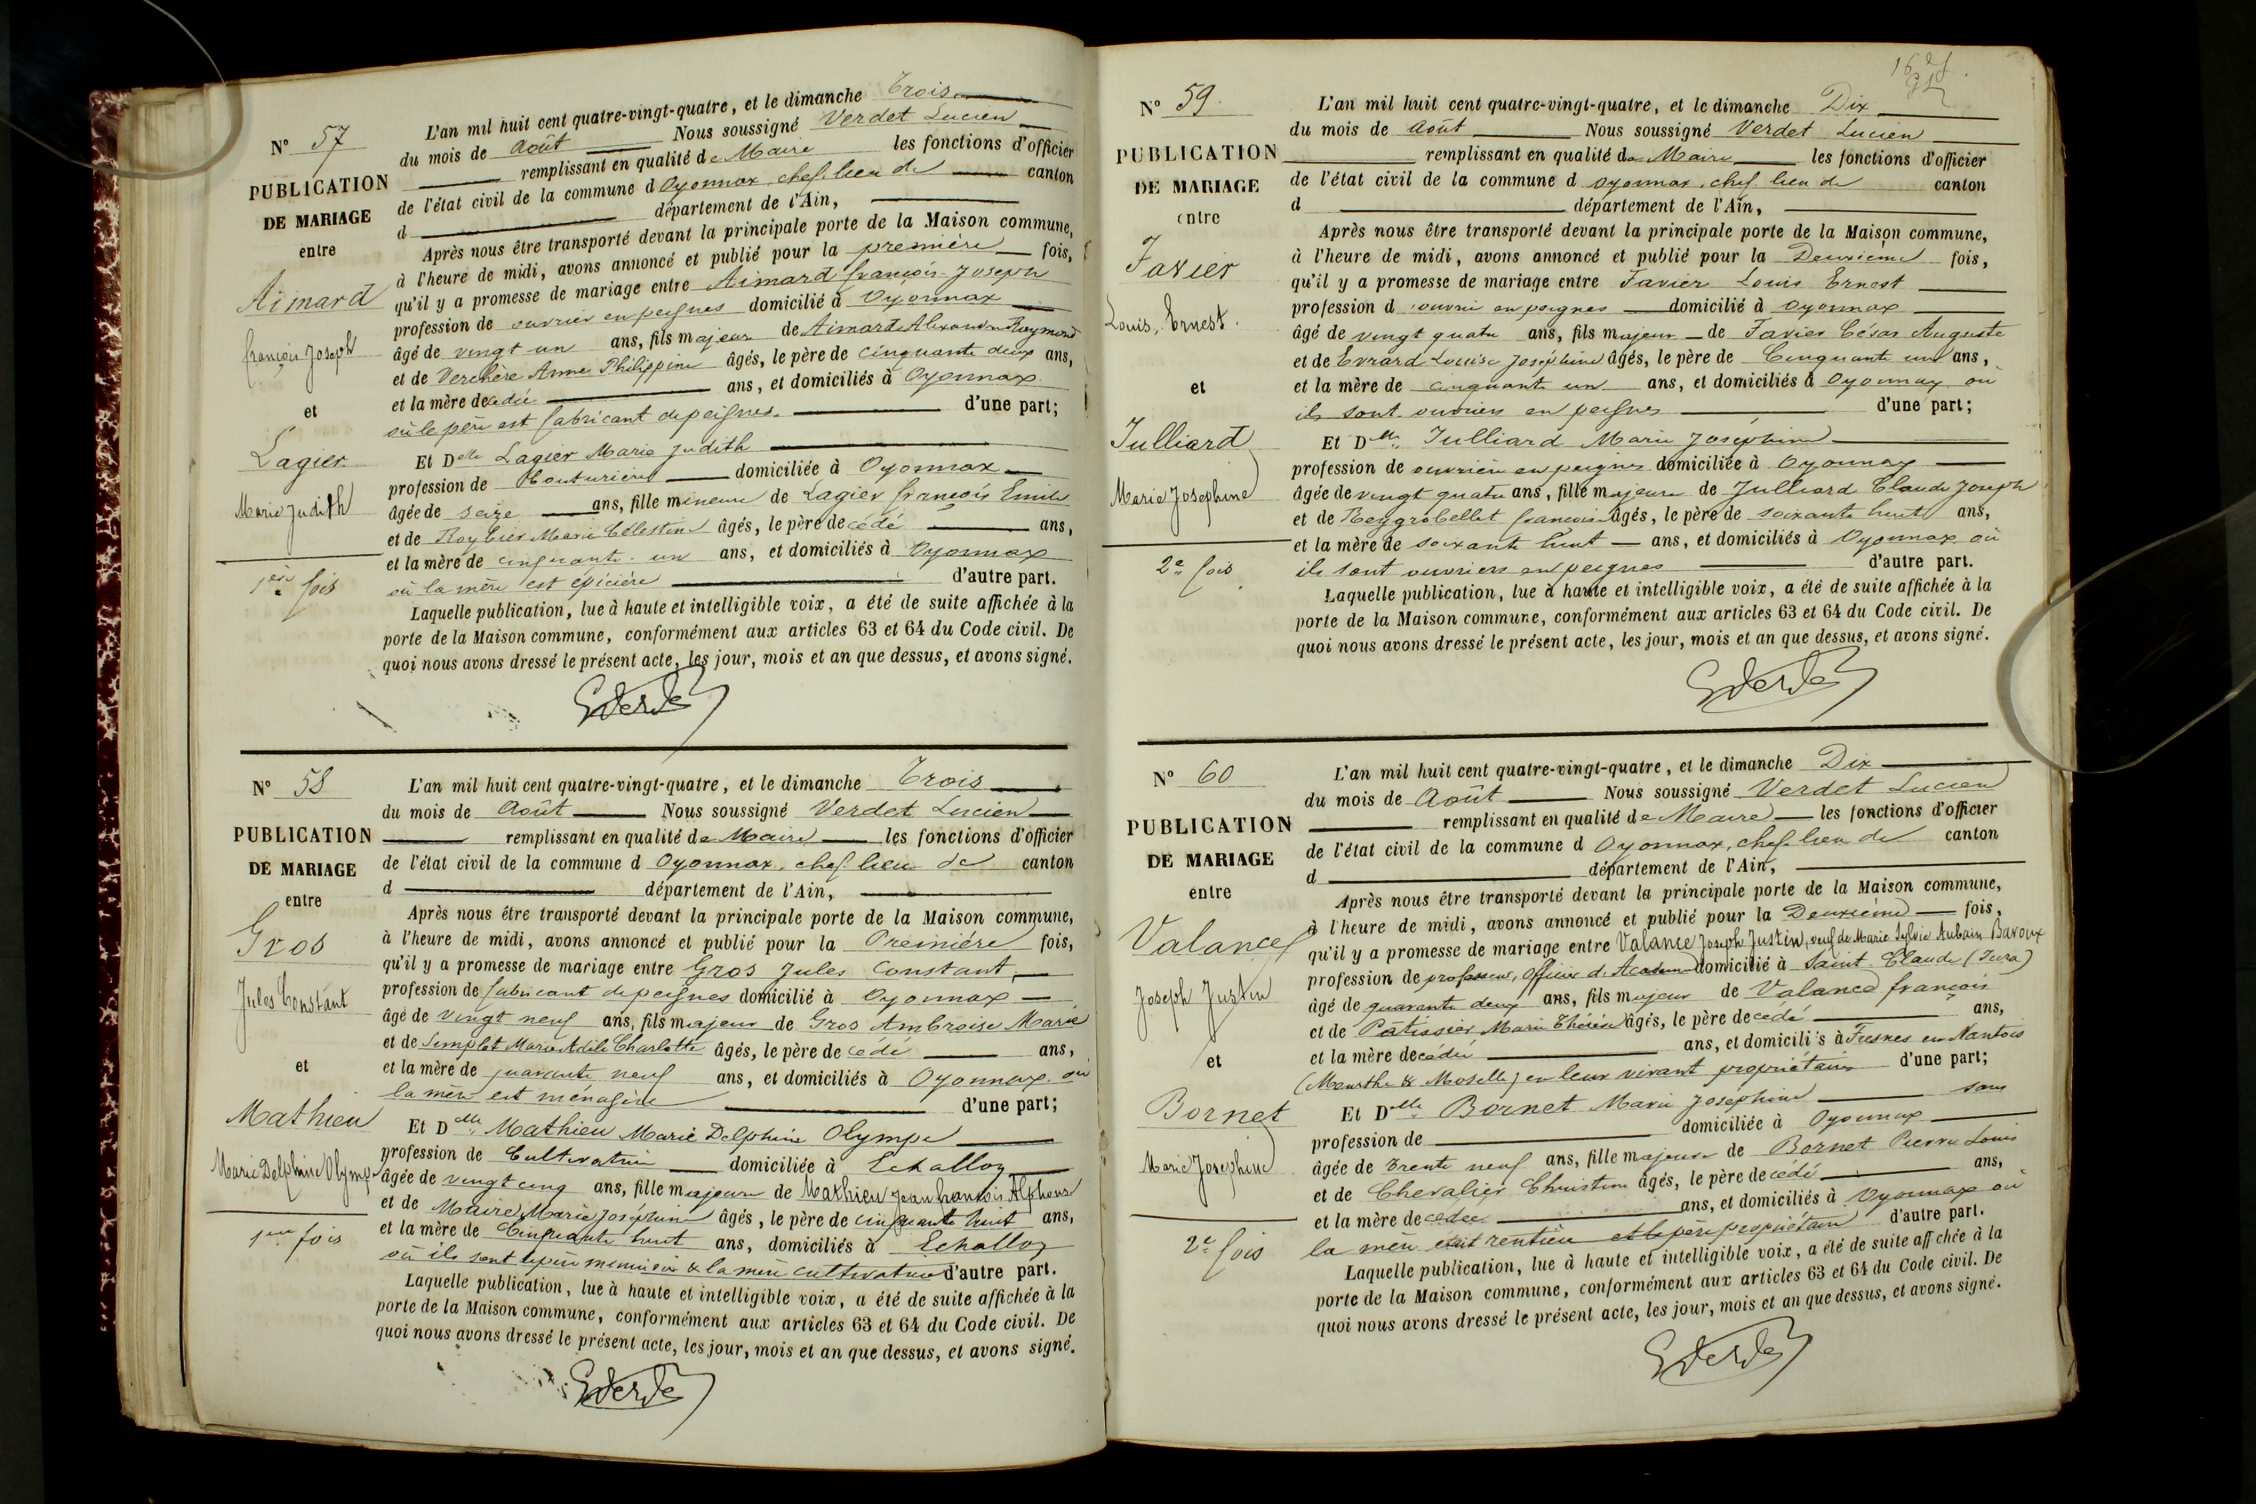 N° 57
PUBLICATION
DE MARIAGE
entre
Aimard
françois Joseph
et
Lagier
Marie Judith
1ère fois
L'an mil huit cent quatre-vingt-quatre, et le dimanche Trois
du mois de Août Nous soussigné Verdet Lucien
remplissant en qualité de Maire les fonctions d'officier
de l'état civil de la commune d Oyonnax, chef lieu de canton
d département de l'Ain,
Après nous être transporté devant la principale porte de la Maison commune,
à l'heure de midi, avons annoncé et publié pour la première fois,
qu'il y a promesse de mariage entre Aimard françois Joseph
profession de ouvrier en peignes domicilié à Oyonnax
âgé de vingt un ans, fils majeur de Aimard Alexandre Raymond
et de Verchère Anne Philippine âgés, le père de cinquante deux ans,
et la mère decedée ans, et domiciliés à Oyonnax
où le père est fabricant de peignes. d'une part;
Et Delle Lagier Marie Judith
profession de Couturière domiciliée à Oyonnax
âgée de seize ans, fille mineure de Lagier françois Emile
et de Roybier Marie Célestine âgés, le père décédé ans,
et la mère de cinquante un ans, et domiciliés à Oyonnax
où la mère est épicière d'autre part.
Laquelle publication, lue à haute et intelligible voix, a été de suite affichée à la
porte de la Maison commune, conformément aux articles 63 et 64 du Code civil. De
quoi nous avons dressé le présent acte, les jour, mois et an que dessus, et avons signé.
N° 58
PUBLICATION
DE MARIAGE
entre
Gros
Jules Constant
et
Mathieu
Marie Delphine Olympe
1ère fois
L'an mil huit cent quatre-vingt-quatre, et le dimanche Trois
du mois de Août Nous soussigné Verdet Lucien
remplissant en qualité de Maire les fonctions d'officier
de l'état civil de la commune d Oyonnax, chef lieu de canton
d département de l'Ain,
Après nous être transporté devant la principale porte de la Maison commune,
à l'heure de midi, avons annoncé et publié pour la Première fois,
qu'il y a promesse de mariage entre Gros Jules Constant,
profession de fabricant de peignes domicilié à Oyonnax
âgé de vingt neuf ans, fils majeur de Gros Ambroise Marie
et de Semplet Marie Adèle Charlotte âgés, le père de cédé ans,
et la mère de quarante neuf ans, et domiciliés à Oyonnax où
la mère est ménagère d'une part;
Et Delle Mathieu Marie Delphine Olympe
profession de Cultivatrice domiciliée à Echallon
âgée de vingt cinq ans, fille majeure de Mathieu Jean françois Alphonse
et de Maire Marie Joséphine âgés, le père de cinquante huit ans,
et la mère de Cinquante huit ans, domiciliés à Echallon
où ils sont le père menuisier & la mère cultivatrice d'autre part.
Laquelle publication, lue à haute et intelligible voix, a été de suite affichée à la
porte de la Maison commune, conformément aux articles 63 et 64 du Code civil. De
quoi nous avons dressé le présent acte, les jour, mois et an que dessus, et avons signé.
N° 59
PUBLICATION
DE MARIAGE
entre
Favier
Louis, Ernest.
et
Julliard
Marie Josephine
2e fois
L'an mil huit cent quatre-vingt-quatre, et le dimanche Dix
du mois de Août Nous soussigné Verdet Lucien
remplissant en qualité de Maire les fonctions d'officier
de l'état civil de la commune d Oyonnax, chef lieu de canton
d département de l'Ain,
Après nous être transporté devant la principale porte de la Maison commune,
à l'heure de midi, avons annoncé et publié pour la Deuxième fois,
qu'il y a promesse de mariage entre Favier Louis Ernest
profession d ouvrier en peignes domicilié à Oyonnax
âgé de vingt quatre ans, fils majeur de Favier César Auguste
et de Evrard Louise Joséphine âgés, le père de Cinquante un ans,
et la mère de cinquante un ans, et domiciliés à Oyonnax où
ils sont ouvriers en peignes d'une part;
Et Delle Julliard Marie Joséphine
profession de ouvrière en peignes domiciliée à Oyonnax
âgée de vingt quatre ans, fille majeure de Julliard Claude Joseph
et de Reygrobellet françoise âgés, le père de soixante huit ans,
et la mère de soixante huit ans, et domiciliés à Oyonnax où
ils sont ouvriers en peignes d'autre part.
Laquelle publication, lue à haute et intelligible voix, a été de suite affichée à la
porte de la Maison commune, conformément aux articles 63 et 64 du Code civil. De
quoi nous avons dressé le présent acte, les jour, mois et an que dessus, et avons signé.
N° 60
PUBLICATION
DE MARIAGE
entre
Valance
Joseph Justin
et
Bornet
Marie Josephine
2e fois
L'an mil huit cent quatre-vingt-quatre, et le dimanche Dix
du mois de Août Nous soussigné Verdet Lucien
remplissant en qualité de Maire les fonctions d'officier
de l'état civil de la commune d Oyonnax, chef lieu de canton
d département de l'Ain,
Après nous être transporté devant la principale porte de la Maison commune,
à l'heure de midi, avons annoncé et publié pour la Deuxième fois,
qu'il y a promesse de mariage entre Valance Joseph Justin, veuf de Marie Sylvie Aubain Bavoux
profession de professeur, Officier d'Académie domicilié à Saint Claude (Jura)
âgé de quarante deux ans, fils majeur de Valance françois
et de Patissier Marie Thérèse âgés, le père decédé ans,
et la mère decédée ans, et domiciliés à Fresnes en Saintois
(Meurthe & Moselle) en leur vivant propriétaires d'une part;
Et Delle Bornet Marie Josephine sans
profession de domiciliée à Oyonnax
âgée de Trente neuf ans, fille majeure de Bornet Pierre Louis
et de Chevalier Christine âgés, le père decédé ans,
et la mère decedée ans, et domiciliés à Oyonnax où
la mère était rentière et le père propriétaire d'autre part.
Laquelle publication, lue à haute et intelligible voix, a été de suite affichée à la
porte de la Maison commune, conformément aux articles 63 et 64 du Code civil. De
quoi nous avons dressé le présent acte, les jour, mois et an que dessus, et avons signé.